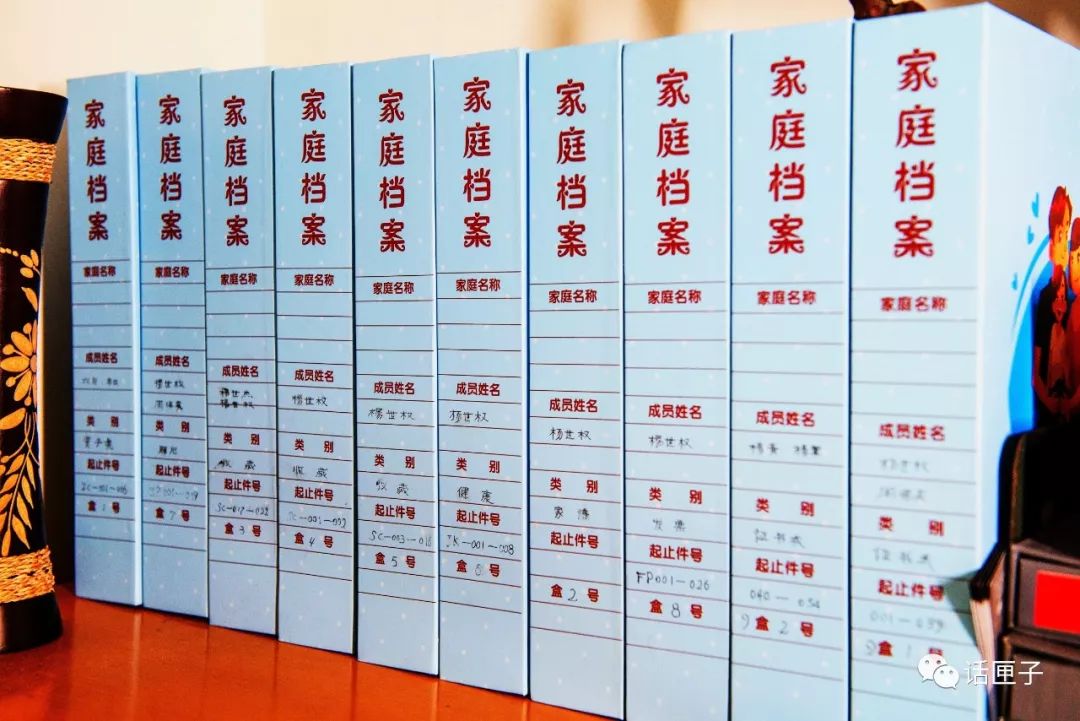 家庭档案
家庭名称
成员姓名
类别
起止件号
盒1号
家庭档案
家庭名称
成员姓名
杨世权
类别
起止件号
盒7号
家庭档案
家庭名称
成员姓名
类别
收藏
起止件号
SC-017-022
盒3号
家庭档案
家庭名称
成员姓名
杨世权
类别
收藏
起止件号
SC-001-002
盒4号
家庭档案
家庭名称
成员姓名
杨世权
类别
收藏
起止件号
SC-003-016
盒5号
家庭档案
家庭名称
成员姓名
杨世权
类别
健康
起止件号
JK-001-008
盒6号
家庭档案
家庭名称
成员姓名
杨世权
类别
家谱
起止件号
盒2号
家庭档案
家庭名称
成员姓名
杨世权
类别
发票
起止件号
FP001-026
盒8号
家庭档案
家庭名称
成员姓名
类别
证书式
起止件号
040-054
9盒2号
家庭档案
家庭名称
成员姓名
杨世权
类别
证书式
起止件号
001-039
9盒1号
话匣子